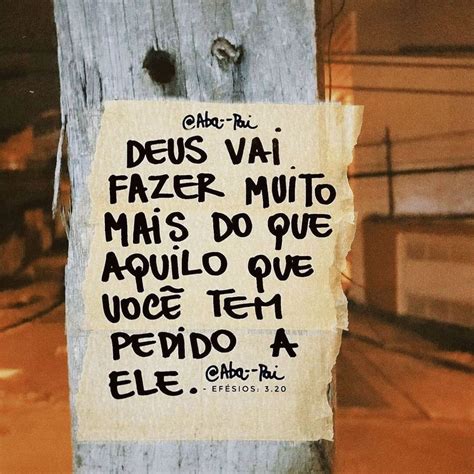 @Aba--Pai
DEUS VAI
FAZER MUITO
MAIS DO QUE
AQUILO QUE
VOCÊ TEM
PEDIDO A
ELE. @Aba--Pai
- EFÉSIOS: 3.20